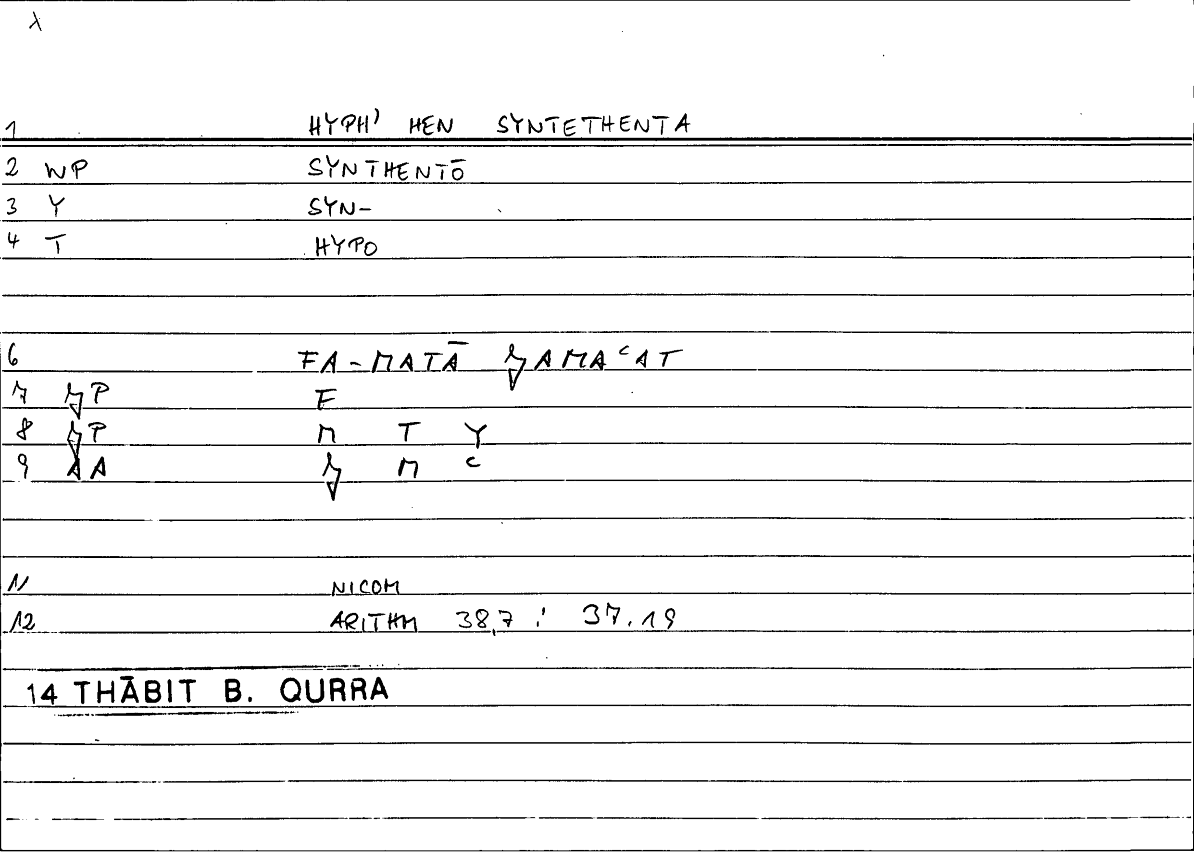 λ
1 HYPH' HEN SYNTETHENTA
2 WP SYNTHENTŌ
3 Y SYN-
4 T HYPO
6 FA-MATĀ ǦAMAʿAT
7 ǦP F
8 ǦP M T Y
9 AA Ǧ M ʿ
11 NICOM
12 ARITHM 38,7 : 37.19
14 THĀBIT B. QURRA